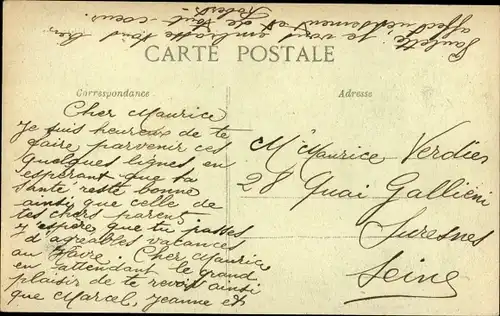 CARTE POSTALE
Correspondance
Cher Maurice
Je suis heureux de te
faire parvenir ces
quelques lignes en
espérant que ta
santé reste bonne
ainsi que celle de
tes chers parents
J'espère que tu passes
d'agréables vacances
au Havre. Cher Maurice
en attendant le grand
plaisir de te revoir ainsi
que Marcel, Jeanne et
Paulette, je vous embrasse tous bien
affectueusement et de tout cœur.
Adresse
Mr Maurice Verdier
28 Quai Galliéni
Suresnes
Seine